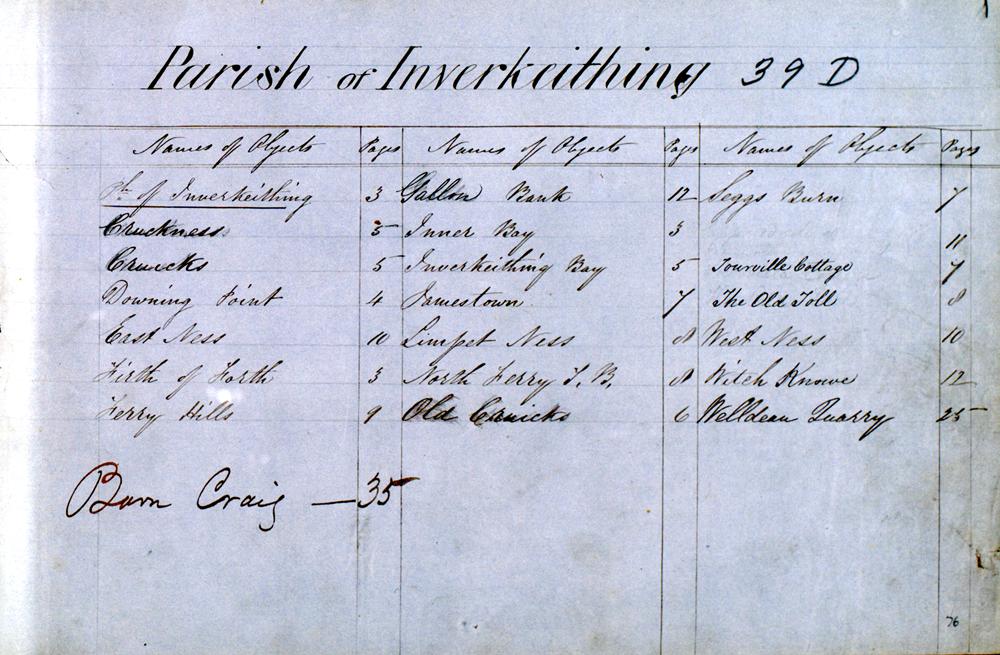 Parish of Inverkeithing 39 D
Names of Objects Pages Names of Objects Pages Names of Objects Pages
Ph. of Inverkeithing 3 Gallow Bank 12 Seggs Burn 7
Cruckness 5 Inner Bay 3 11
Cruicks 5 Inverkeithing Bay 5 Tourville Cottage 7
Downing Point 4 Jamestown 7 The Old Toll 8
East Ness 10 Limpet Ness 8 West Ness 10
Firth of Forth 3 North Ferry T.B. 8 Witch Knowe 12
Ferry Hills 9 Old Cruicks 6 Welldean Quarry 25
Barn Craig — 35
76